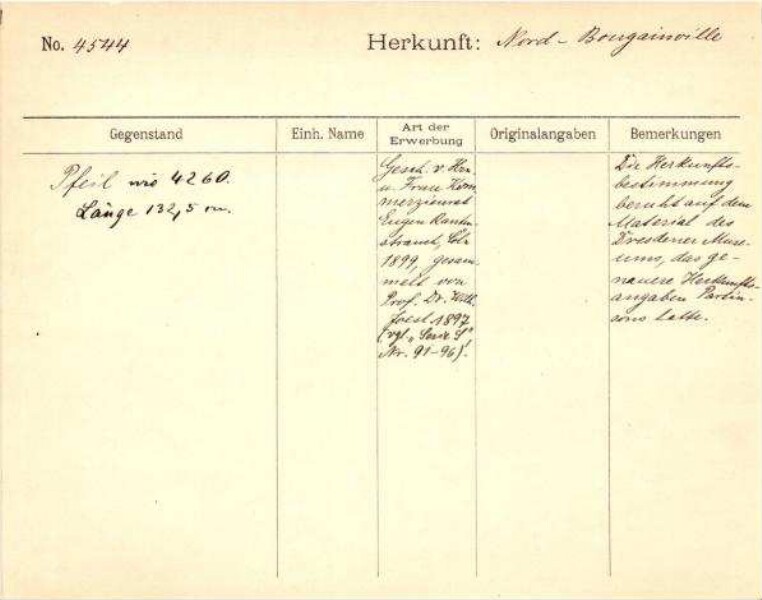 No. 4544
Herkunft: Nord-Bougainville
Gegenstand
Einh. Name
Art der Erwerbung
Originalangaben
Bemerkungen
Pfeil wie 4260.
Länge 132,5 cm.
Gesch. v. Hrn.
u. Frau Kom-
merzienrat
Eugen Rauten-
strauch, Cöln
1899, gesam-
melt von
Prof. Dr. Wilh.
Joest 1897
(vgl. „Serie S"
Nr. 91-96)!
Die Herkunfts-
bestimmung
beruht auf dem
Material des
Dresdener Muse-
ums, das ge-
nauere Herkunfts-
angaben Parkin-
sons hatte.